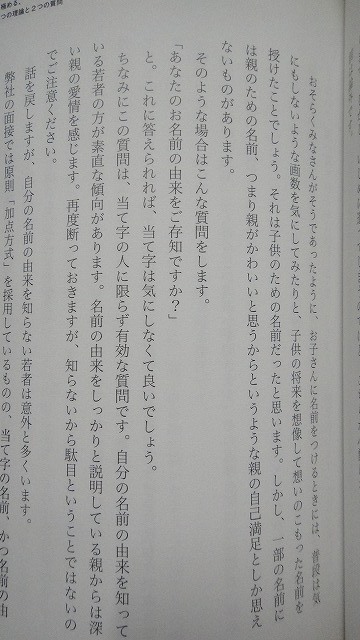 極める、
つの理論と２つの質問
おそらくみなさんがそうであったように、お子さんに名前をつけるときには、普段は気
にもしないような画数を気にしてみたりと、子供の将来を想像して想いのこもった名前を
授けたことでしょう。それは子供のための名前だったと思います。しかし、一部の名前に
は親のための名前、つまり親がかわいいと思うからというような親の自己満足としか思え
ないものがあります。
そのような場合はこんな質問をします。
「あなたのお名前の由来をご存知ですか？」
と。これに答えられれば、当て字は気にしなくて良いでしょう。
ちなみにこの質問は、当て字の人に限らず有効な質問です。自分の名前の由来を知って
いる若者の方が素直な傾向があります。名前の由来をしっかりと説明している親からは深
い親の愛情を感じます。再度断っておきますが、知らないから駄目ということではないの
でご注意ください。
話を戻しますが、自分の名前の由来を知らない若者は意外と多くいます。
弊社の面接では原則「加点方式」を採用しているものの、当て字の名前、かつ名前の由